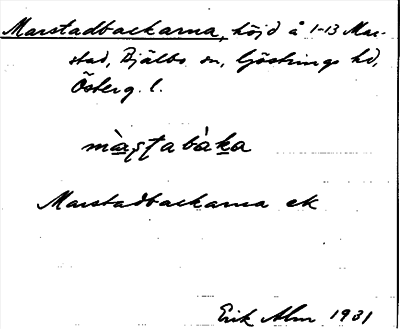 Marstadbackarna, höjd å 1-13 Mar-
stad, Bjälbo sn, Göstrings hd,
Österg. l.
màʂʈabàka
Marstadbackarna ek
Erik Alm 1931